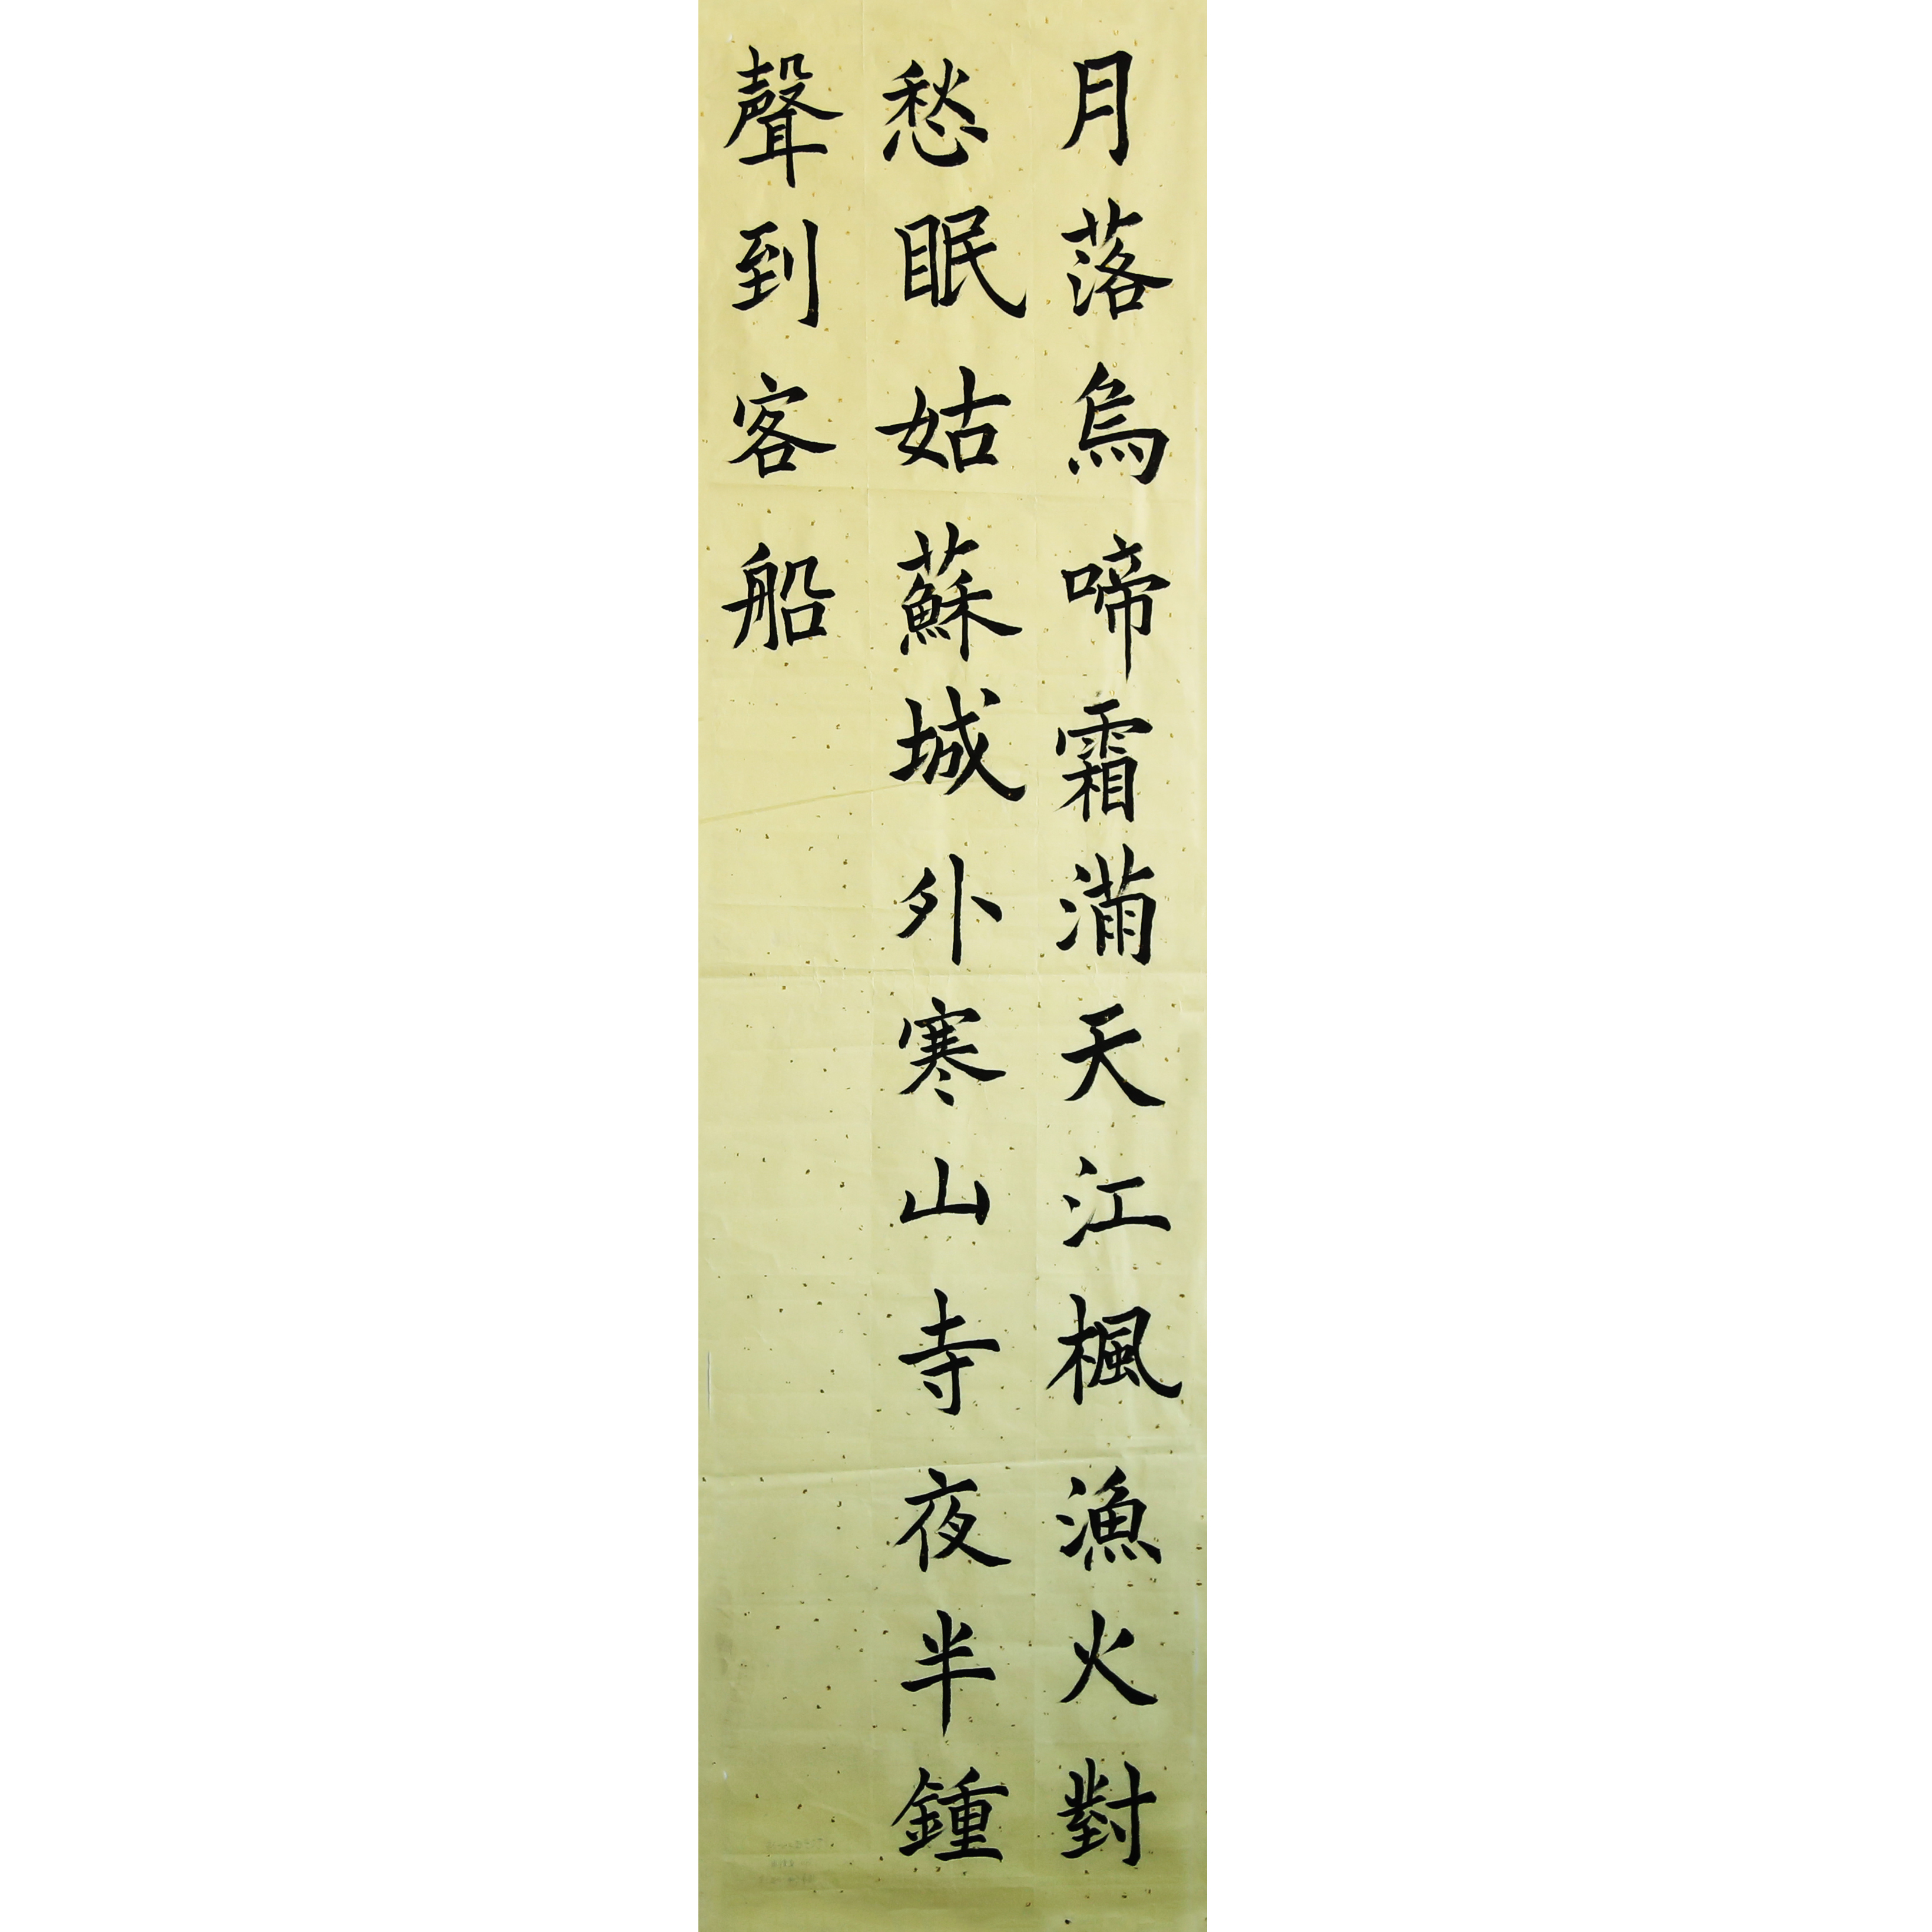 月落烏啼霜滿天江楓漁火對
愁眠姑蘇城外寒山寺夜半鍾
聲到客船